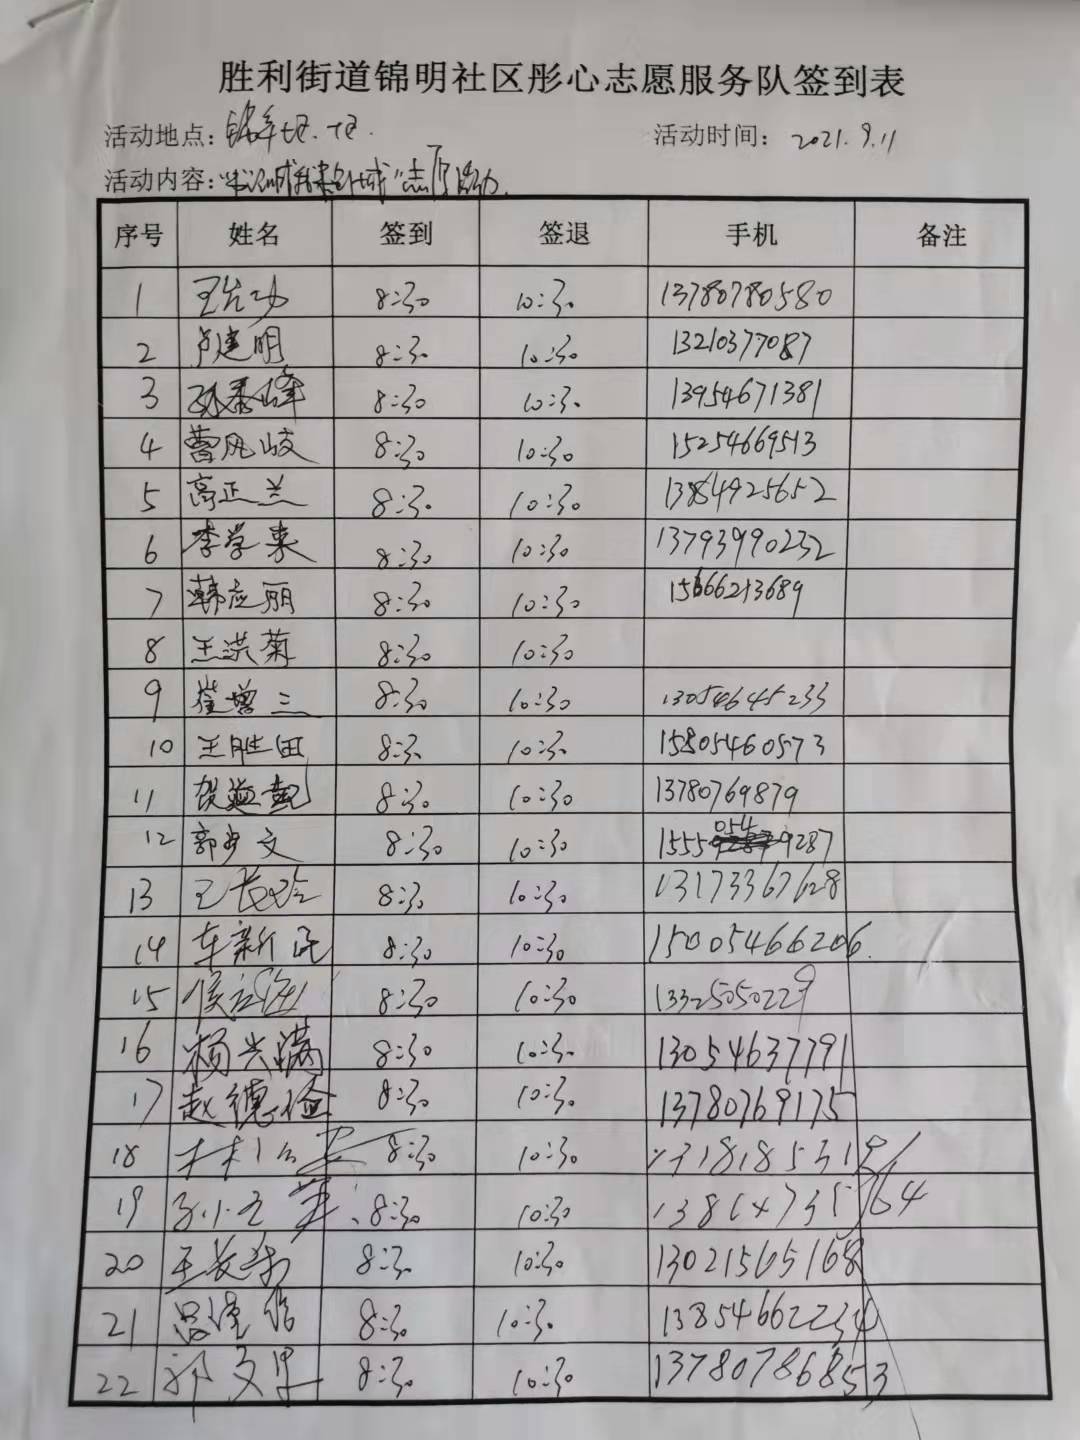 胜利街道锦明社区彤心志愿服务队签到表
活动地点： 活动时间：2021.9.11
活动内容：
序号 姓名 签到 签退 手机 备注
1 8:30 10:30 13780780580
2 卢建明 8:30 10:30 13210377087
3 孙秀峰 8:30 10:30 13954671381
4 曹凤岐 8:30 10:30 15254669513
5 高正兰 8:30 10:30 13864925652
6 李学来 8:30 10:30 13793990232
7 韩应丽 8:30 10:30 15666213689
8 王洪菊 8:30 10:30
9 崔增三 8:30 10:30 13054645233
10 王胜田 8:30 10:30 15805460573
11 8:30 10:30 13780769879
12 郭少文 8:30 10:30 15550549287
13 王长玲 8:30 10:30 13173367628
14 车新民 8:30 10:30 15005466206
15 8:30 10:30 13325050229
16 杨兴满 8:30 10:30 13054637791
17 赵德俭 8:30 10:30 13780769175
18 8:30 10:30
19 8:30 10:30
20 8:30 10:30 13021565168
21 8:30 10:30 13854662234
22 8:30 10:30 13780786853